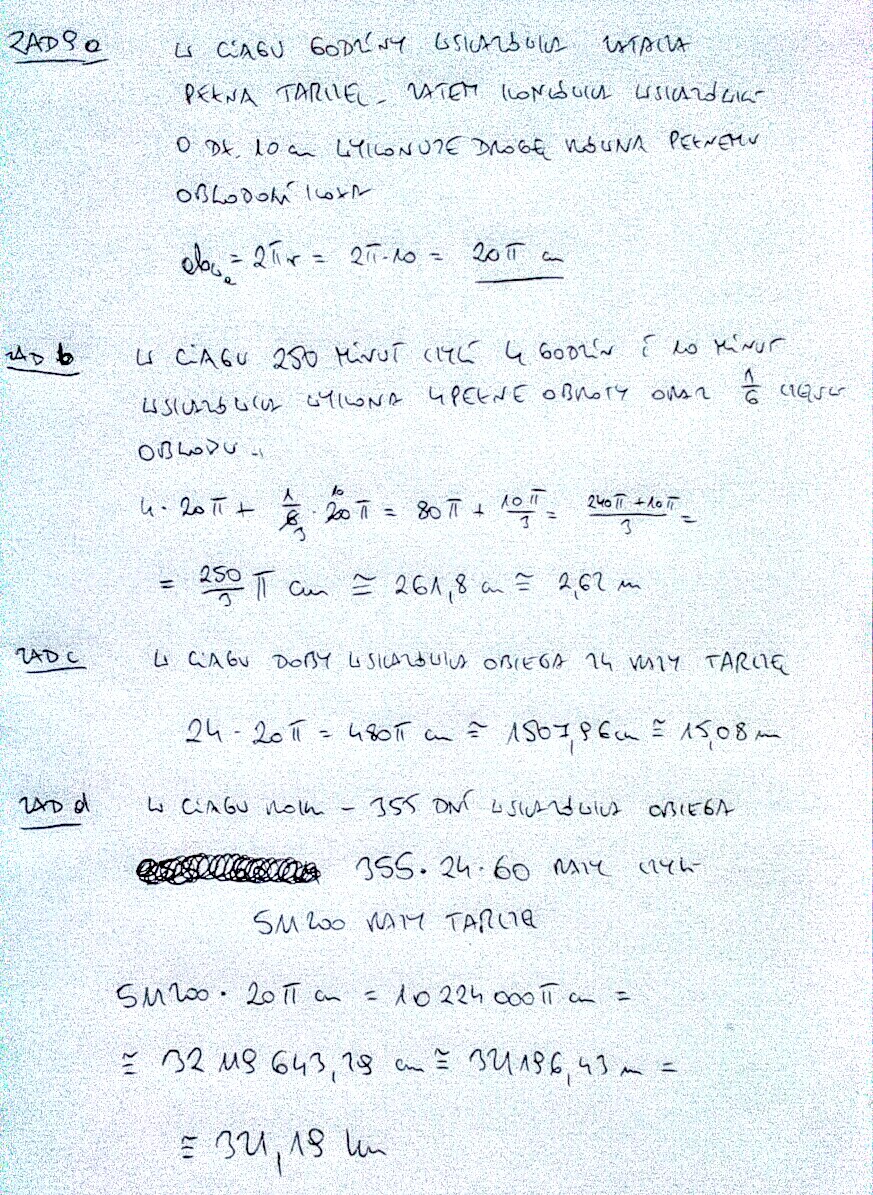 ZAD 9 a W CIĄGU GODZINY WSKAZÓWKA ZATACZA
PEŁNA TARCZĘ. ZATEM KOŃCÓWKA WSKAZÓWKI
O DŁ. 10 cm WYKONUJE DROGĘ RÓWNA PEŁNEMU
OBWODOWI KOŁA
obw = 2πr = 2π·10 = 20π cm
ZAD b W CIĄGU 250 MINUT CZYLI 4 GODZIN I 10 MINUT
WSKAZÓWKA WYKONA 4 PEŁNE OBROTY ORAZ 1/6 CZĘŚCI
OBWODU
4 · 20π + 1/6 · 20π = 80π + 10π/3 = 240π + 10π/3 =
= 250/3 π cm ≅ 261,8 cm ≅ 2,62 m
ZAD c W CIĄGU DOBY WSKAZÓWKA OBIEGA 24 RAZY TARCZĘ
24 · 20π = 480π cm ≅ 1507,96 cm ≅ 15,08 m
ZAD d W CIĄGU ROKU – 355 DNI WSKAZÓWKA OBIEGA
355 · 24 · 60 RAZY CZYLI
511200 RAZY TARCZĘ
511200 · 20π cm = 10 224 000π cm =
≅ 32 119 643,29 cm ≅ 321196,43 m =
≅ 321,19 km